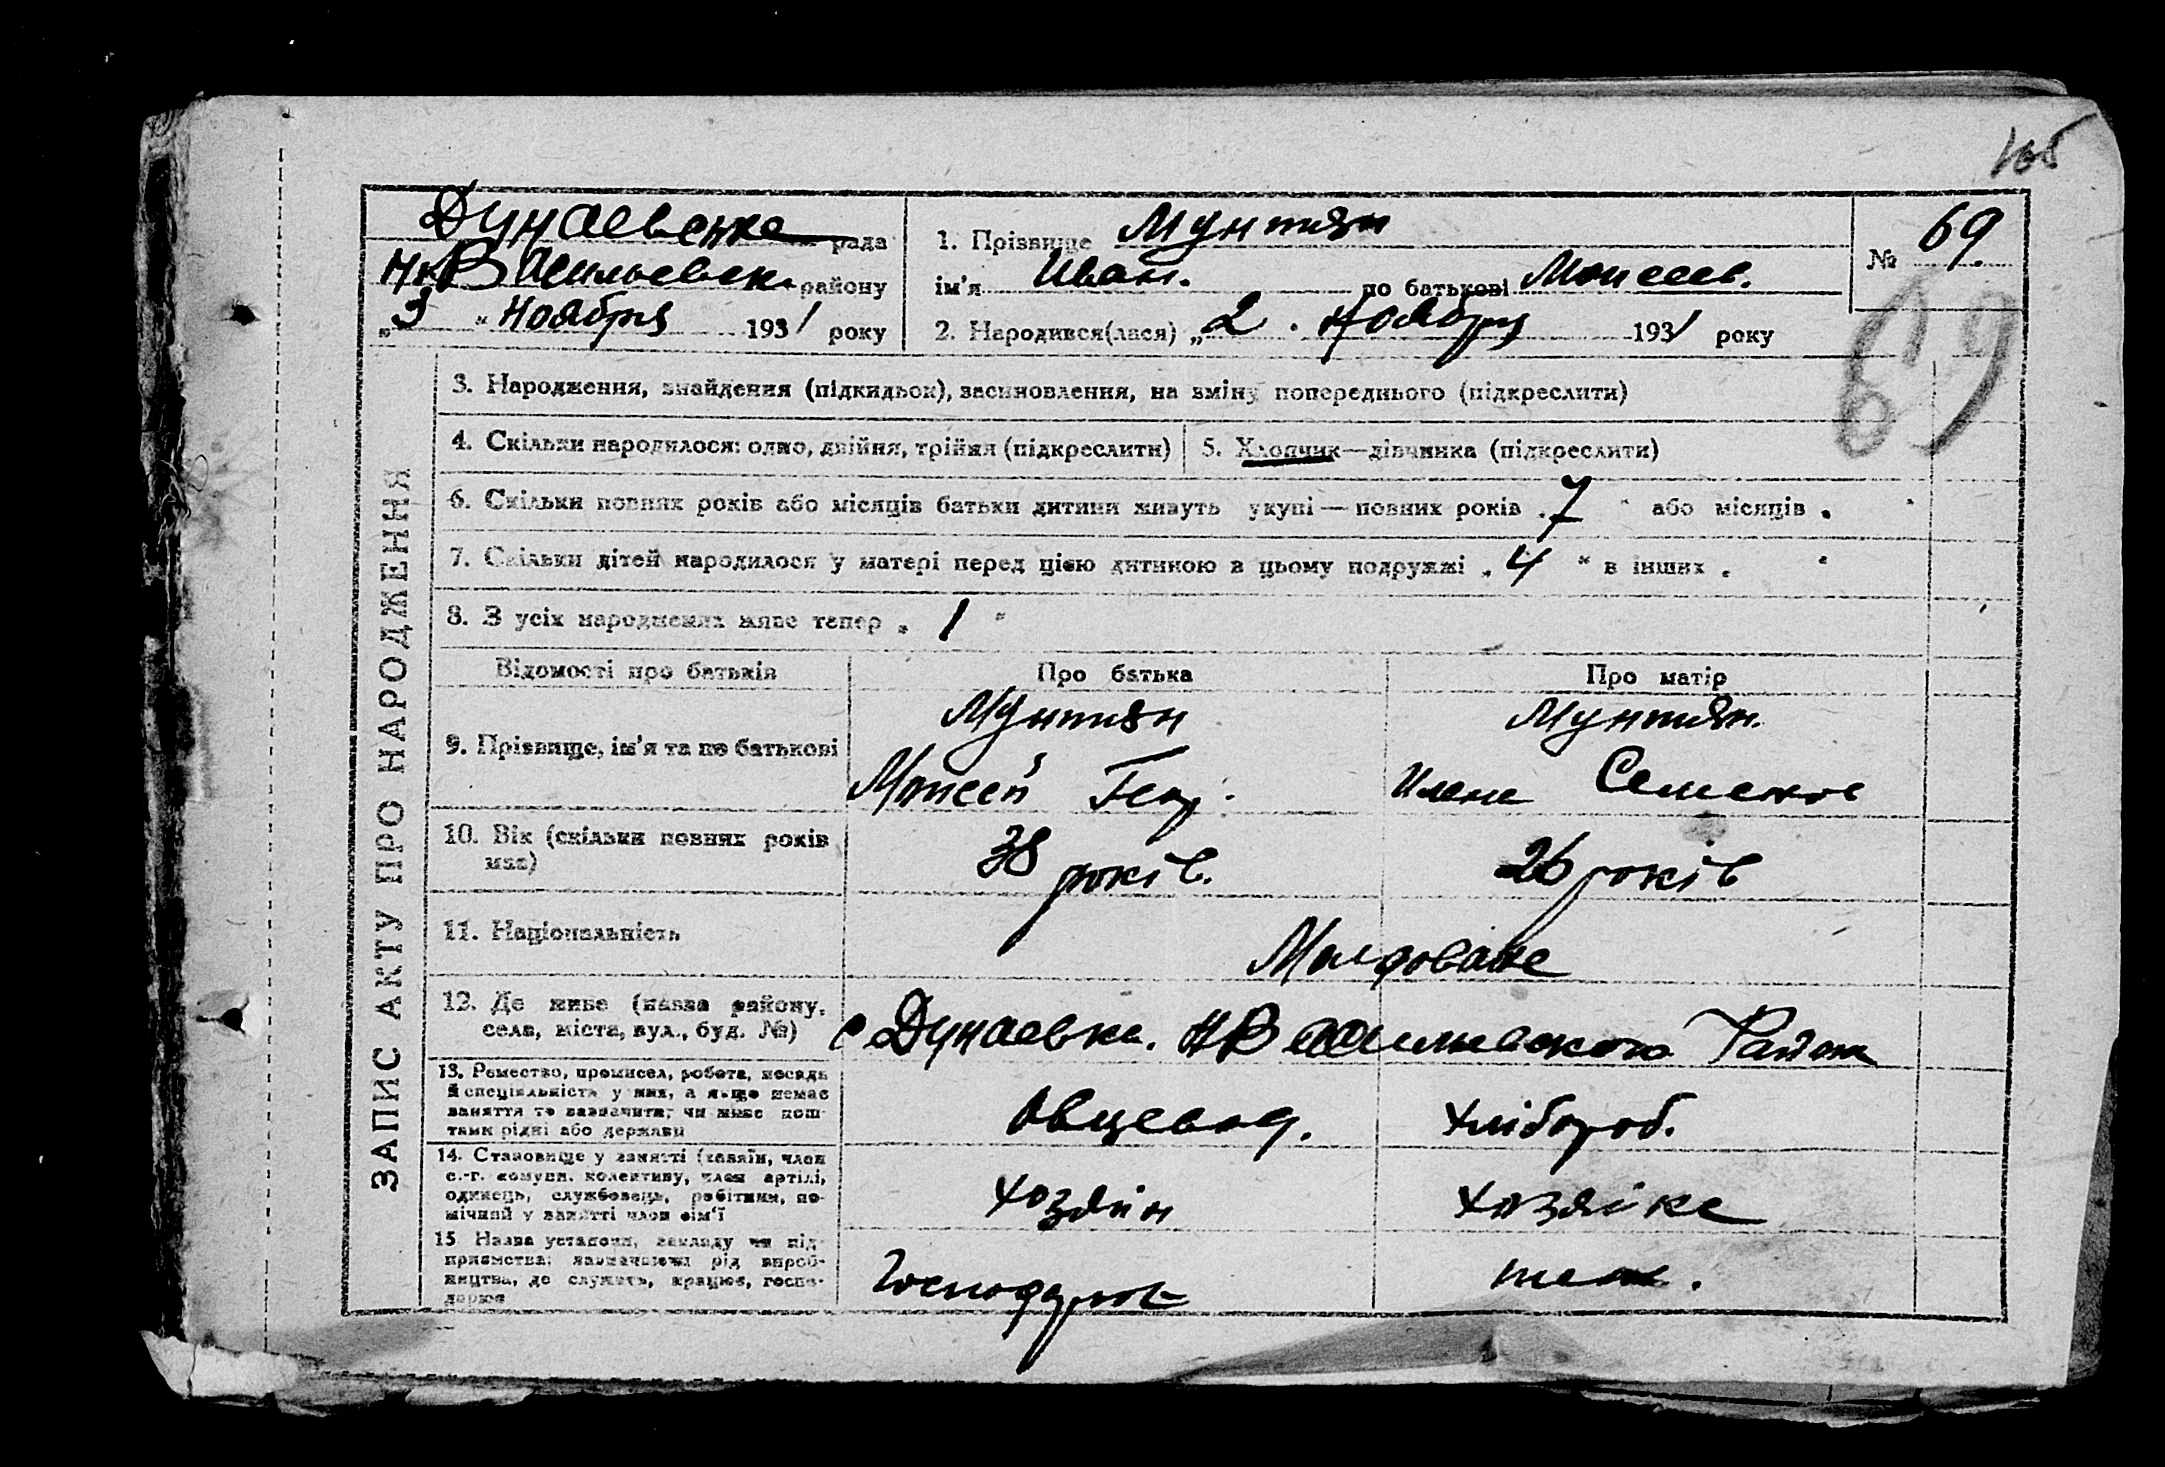 105
Дунаевске рада
Н-Васильевск. району
„3 “ Ноября 1931 року
1. Прізвище Мунтян
ім'я Иван. по батькові Моисеев.
2. Народився(лася) „2. Ноября 1931 року
№ 69.
69
ЗАПИС АКТУ ПРО НАРОДЖЕННЯ
3. Народження, знайдення (підкидьок), засиновлення, на зміну попереднього (підкреслити)
4. Скільки народилося: одно, двійня, трійня (підкреслити) 5. Хлопчик—дівчинка (підкреслити)
6. Скільки повних років або місяців батьки дитини живуть укупі — повних років „7 “ або місяців „ “
7. Скільки дітей народилося у матері перед цією дитиною в цьому подружжі „4 “ в інших „ “
8. З усіх народжених живе тепер „ 1 “
Відомості про батьків Про батька Про матір
9. Прізвище, ім'я та по батькові Мунтян Мунтян.
Моисей Геор. Илена Семенов
10. Вік (скільки повних років має) 38 років. 26 років
11. Національність Молдоване
12. Де живе (назва району,
села, міста, вул., буд. №) с Дунаевка. НВасильевского Район
13. Ремество, промисел, робота, посада
й спеціяльність у них, а якщо немає
заняття то зазначити; чи живе кош-
тами рідні або держави
Овцевод. Хлібороб.
14. Становище у занятті (хазяїн, член
с.-г. комуни, колективу, член артілі,
одинець, службовець, робітник, по-
мічний у занятті член сім'ї
хозяин хозяйка
15. Назва установи, закладу чи під-
приємства; зазначаючи рід вироб-
ництва, де служить, працює, госпо-
дарює
Господарст тоже.